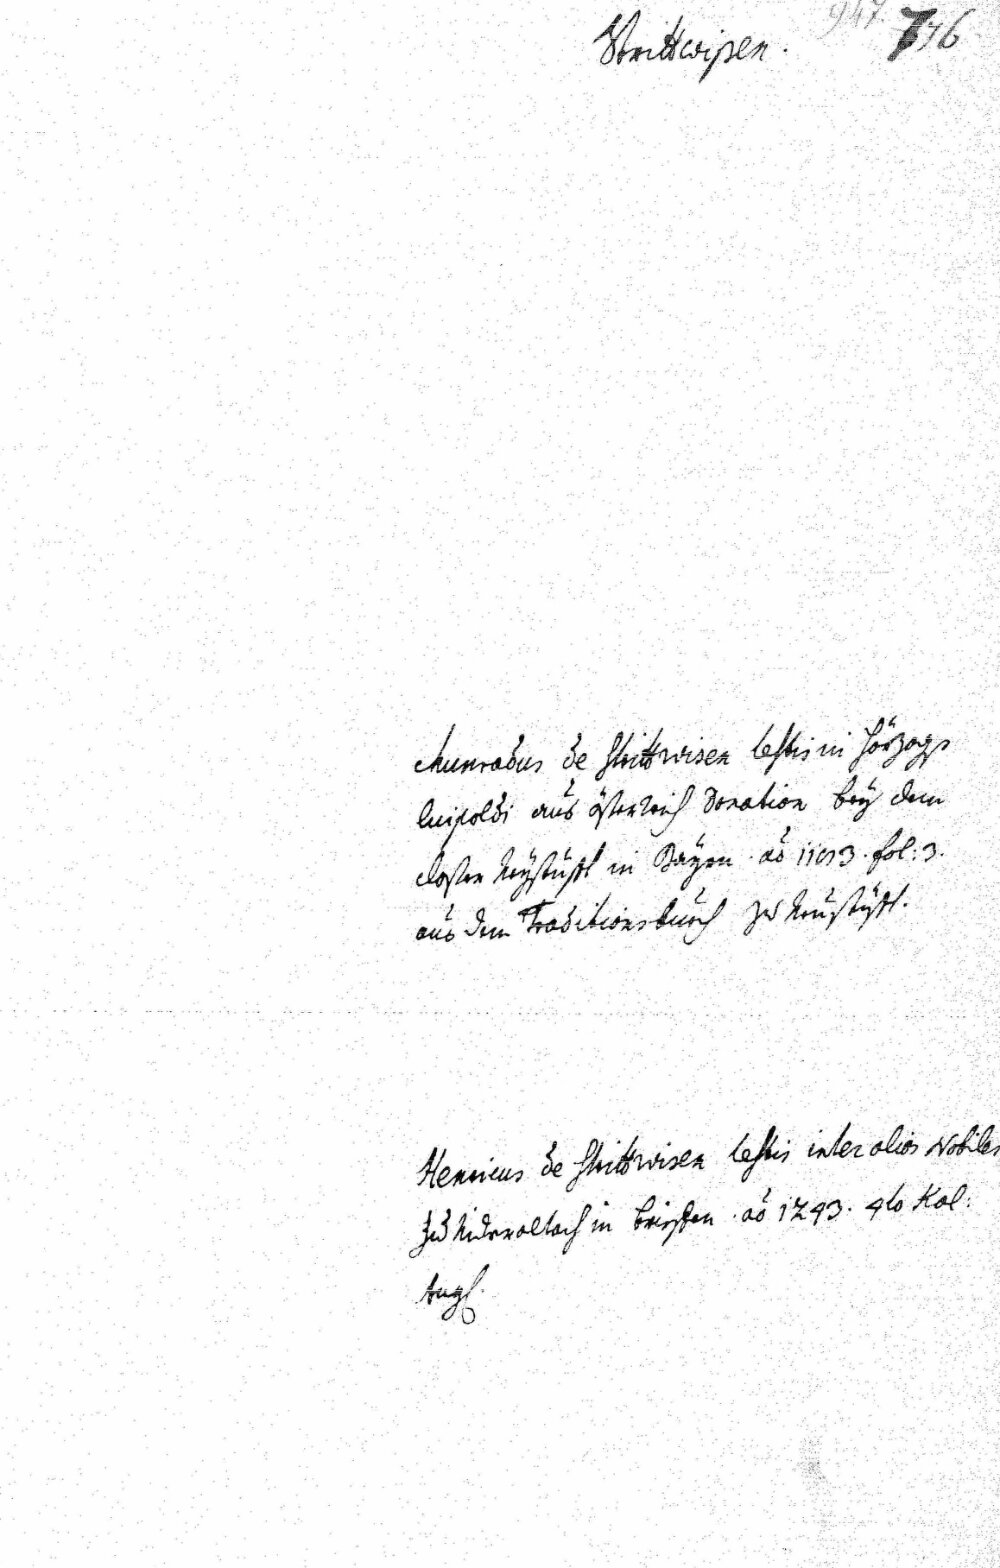 947. 776
Strittwisen.
Chunradus de Strittwisen testis in Hörzogs
Luipoldi aus Österreich Donation bey dem
Closter Neystüfft in Bayrn. aõ 11
fol: 3.
aus dem Traditionsbuech zu Neustüfft.
Henricus de Strittwisen testis inter alios Nobiles
zu Nideraltach in brieffen. aõ 1243. 4to Kal:
Aug.